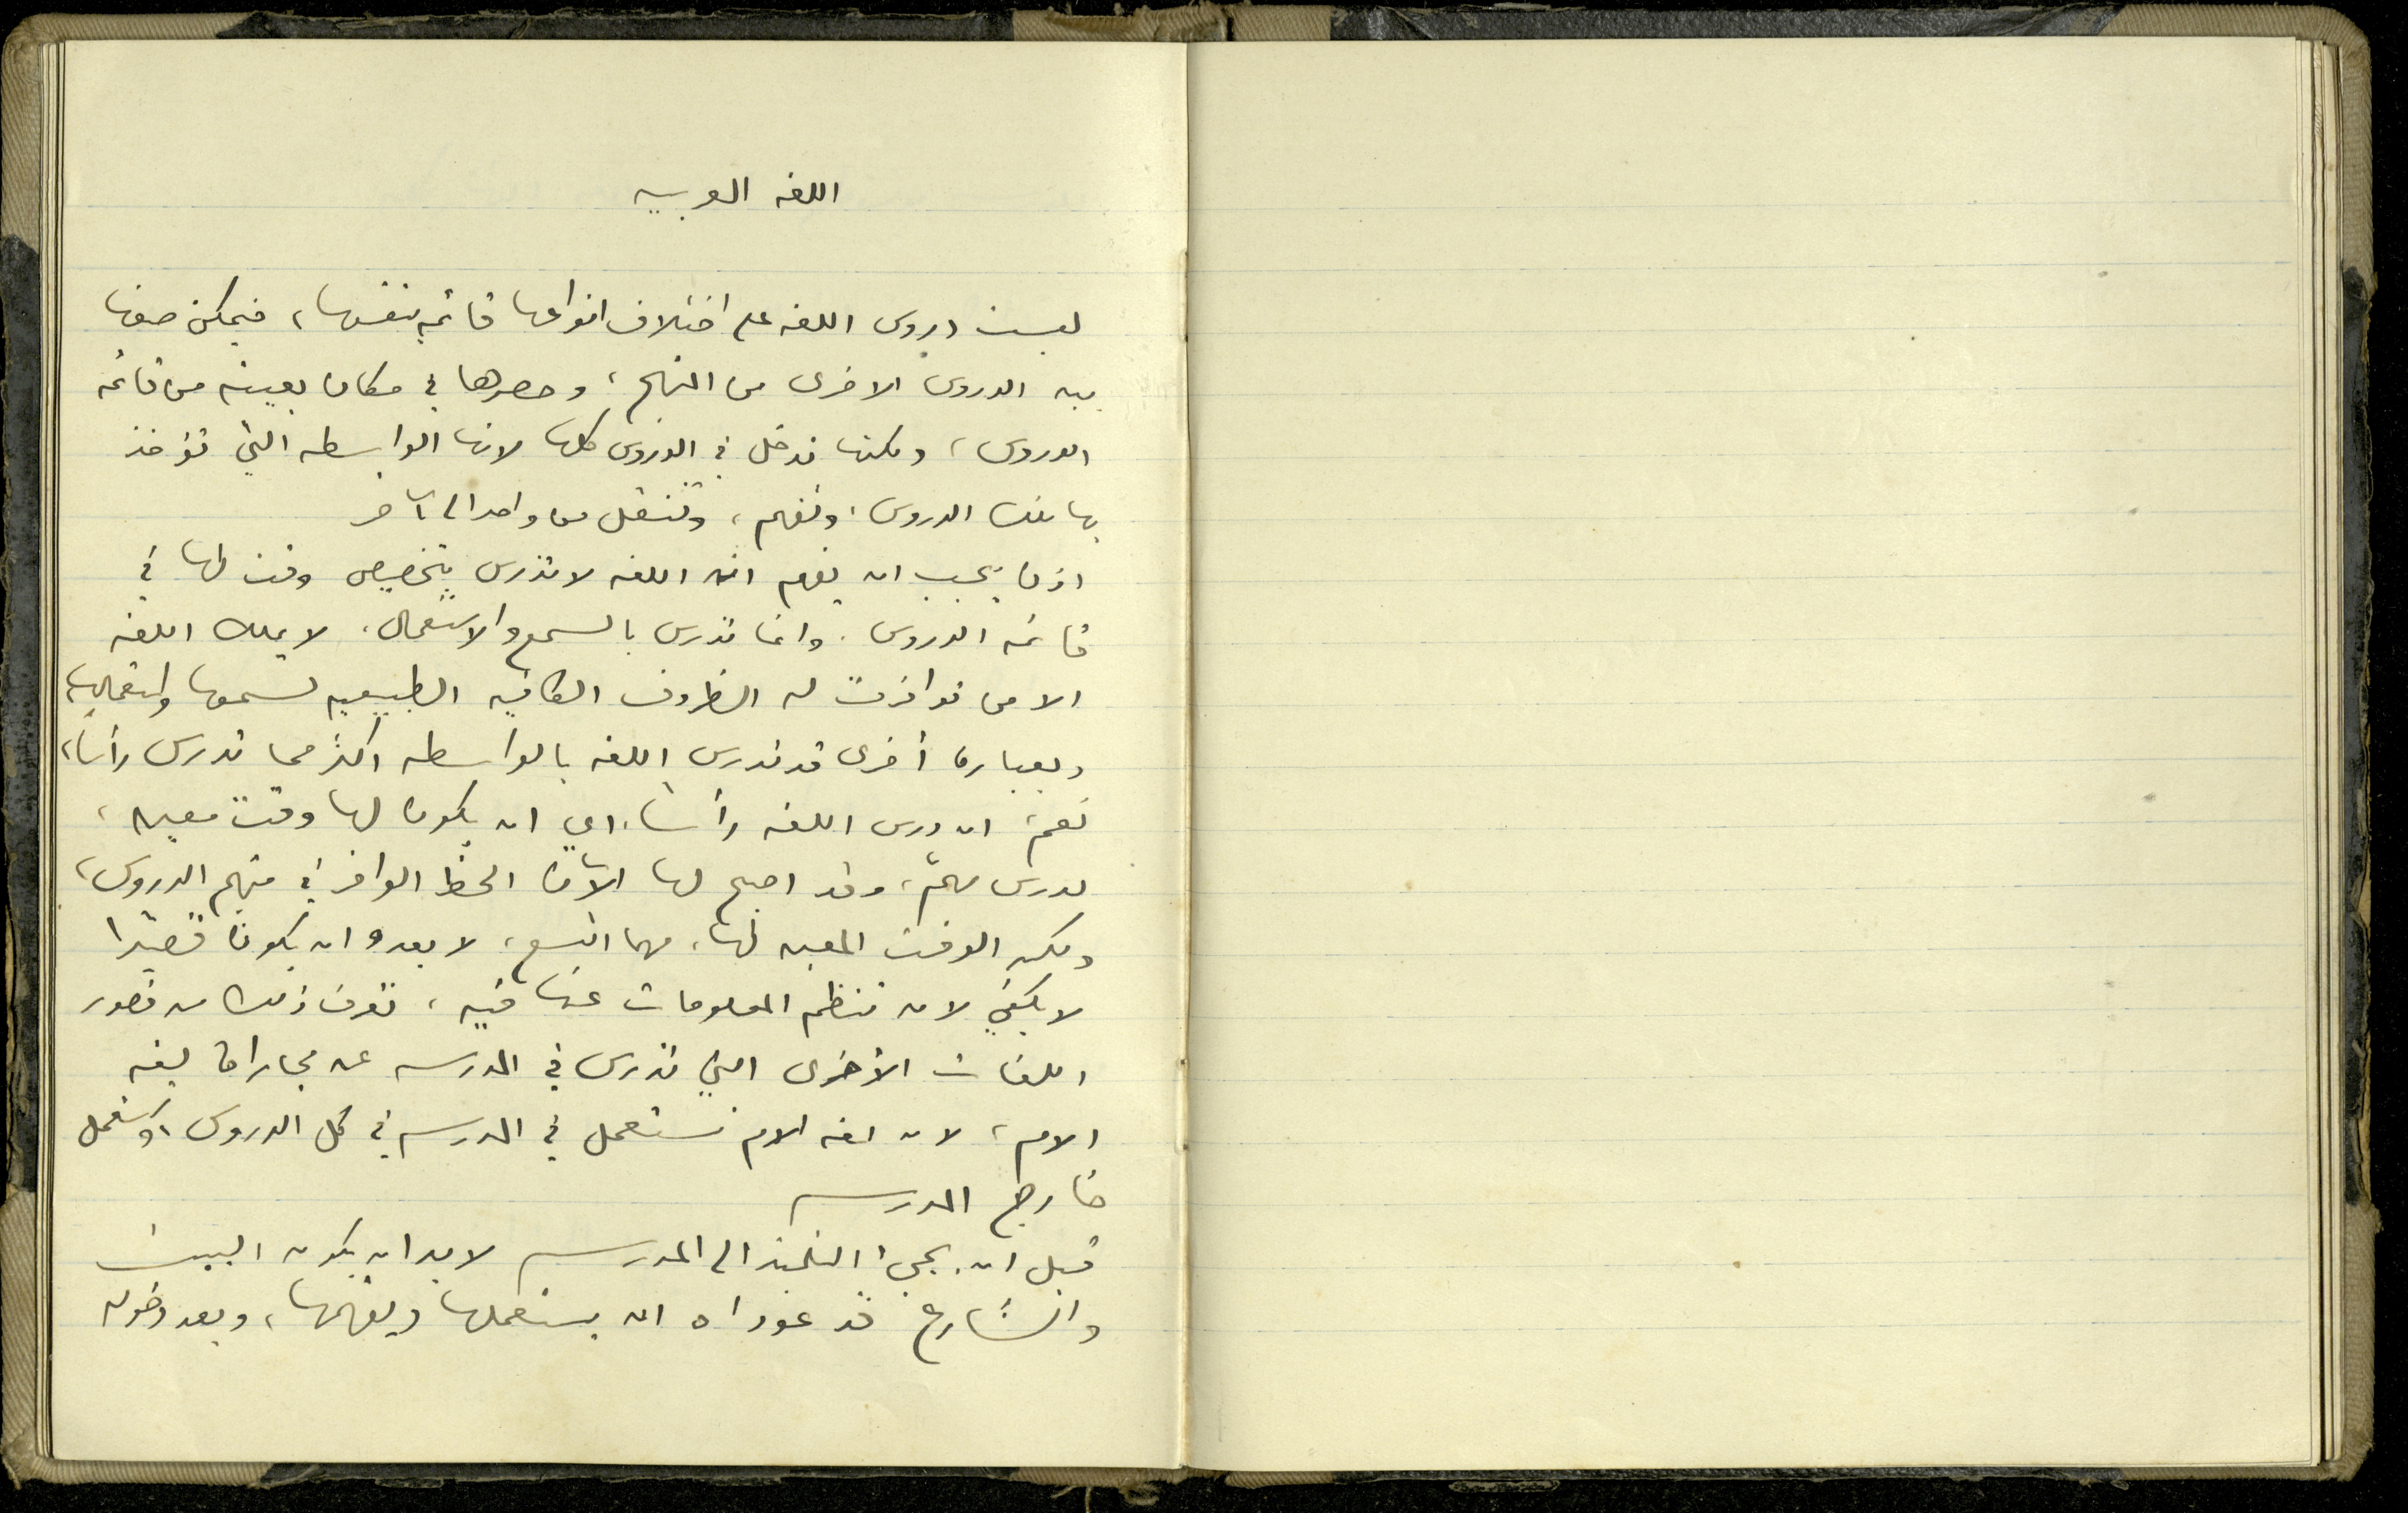 اللغه العربيه
ليست دروس اللغه على اختلاف انواعها قائمه بنفسها، فيمكن صفها
بين الدروس الاخرى من المنهج، وحصرها في مكان بعينه من قائمه
الدروس، ولكنها تدخل في الدروس كلها لانها الواسطه التي تؤخذ
بها تلك الدروس، وتفهم، وتنتقل من واحد الى آخر
اذن يجب ان يفهم ان اللغه لا تدرس بتخصيص وقت لها في
قائمه الدروس. وانما تدرس بالسمع والاستعمال. لا يملك اللغه
الا من توافرت له الظروف الكافيه الطبيعيه لسمعها واستعمالها
وبعبارة أخرى قد تدرس اللغه بالواسطه اكثر مما تدرس رأسا،
نعم، ان درس اللغه رأسا، اي ان يكون لها وقت معين،
لدرس مهم، وقد اصبح لها الآن الحظ الوافر في منهج الدروس،
ولكن الوقت المعين لها، مهما اتسع، لا يعدو ان يكون قصيرا
لا يكفي لان تنظم المعلومات عنها فيه، تعرف ذلك من قصور
اللغات الأخرى التي تدرس في المدرسه عن مجاراة لغه
الام، لان لغه الام تستعمل في المدرسه في كل الدروس، وتستعمل
خارج المدرسه
قبل ان يجيء التلميذ الى المدرسه لا بد ان يكون البيت
والشارع قد عوداه ان يستعملها ويفهمها، وبعد دخوله